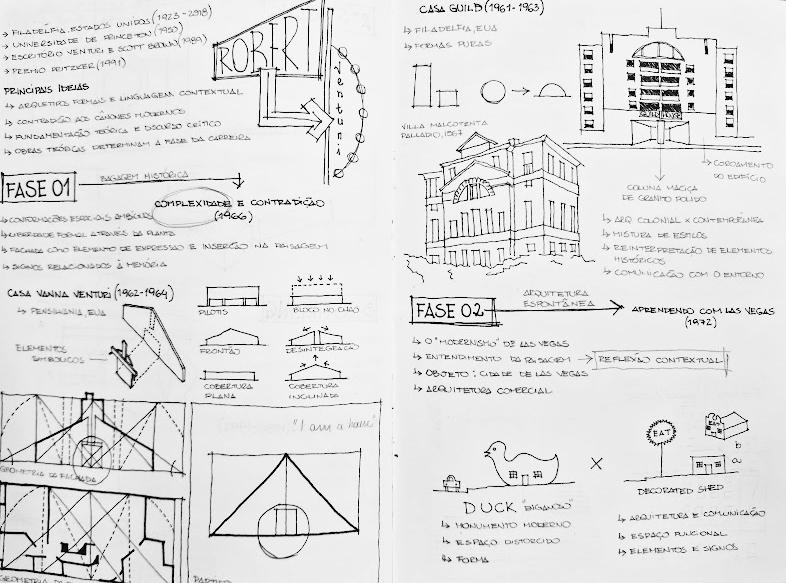 → FILADÉLFIA, ESTADOS UNIDOS (1923-2018)
→ UNIVERSIDADE DE PRINCETON (1950)
→ ESCRITÓRIO VENTURI E SCOTT BROWN (1989)
→ PRÊMIO PRITZKER (1991)
ROBERT
venturi
PRINCIPAIS IDEIAS
↳ ARQUÉTIPOS FORMAIS E LINGUAGEM CONTEXTUAL
↳ CONTRADIÇÃO AOS CÂNONES MODERNOS
↳ FUNDAMENTAÇÃO TEÓRICA E DISCURSO CRÍTICO
↳ OBRAS TEÓRICAS DETERMINAM A FASE DA CARREIRA
FASE 01
BAGAGEM HISTÓRICA
COMPLEXIDADE E CONTRADIÇÃO
(1966)
↳ CONFORMAÇÕES ESPACIAIS AMBÍGUAS
↳ LIBERDADE FORMAL ATRAVÉS DA PLANTA
↳ FACHADA COMO ELEMENTO DE EXPRESSÃO E INSERÇÃO NA PAISAGEM
↳ SIGNOS RELACIONADOS À MEMÓRIA
CASA VANNA VENTURI (1962-1964)
↳ PENSILVANIA, EUA
ELEMENTOS
SIMBÓLICOS
PILOTIS
BLOCO NO CHÃO
FRONTÃO
DESINTEGRAÇÃO
COBERTURA
PLANA
COBERTURA
INCLINADA
GEOMETRIA DA FACHADA
"I am a
PARTIDO
CASA GUILD (1961-1963)
↳ FILADÉLFIA, EUA
↳ FORMAS PURAS
VILLA MALCOTENTA
PALLADIO, 1567
GUILD HOUSE
↳ COROAMENTO
DO EDIFÍCIO
COLUNA MACIÇA
DE GRANITO POLIDO
↳ ARQ. COLONIAL X CONTEMPORÂNEA
↳ MISTURA DE ESTILOS
↳ REINTERPRETAÇÃO DE ELEMENTOS
HISTÓRICOS
↳ COMUNICAÇÃO COM O ENTORNO
FASE 02
ARQUITETURA
ESPONTÂNEA
APRENDENDO COM LAS VEGAS
(1972)
↳ O "MODERNISMO" DE LAS VEGAS
↳ ENTENDIMENTO DA PAISAGEM → REFLEXÃO CONTEXTUAL
↳ OBJETO: CIDADE DE LAS VEGAS
↳ ARQUITETURA COMERCIAL
X
EAT
EAT
b
a
DECORATED SHED
DUCK
↳ MONUMENTO MODERNO
↳ ESPAÇO DISTORCIDO
↳ FORMA
↳ ARQUITETURA E COMUNICAÇÃO
↳ ESPAÇO FUNCIONAL
↳ ELEMENTOS E SIGNOS